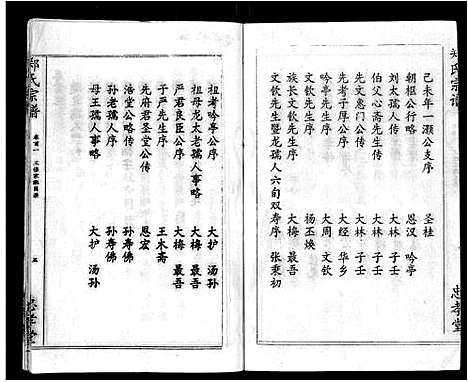 郑氏宗谱
己未年一灏公支序 圣桂
朝枢公行略 恩汉 吟亭
刘太孺人序 大林 子壬
伯父心斋先生序 大林 子壬
先文惠门公传 大林 子壬
先考子厚公序 大经 华乡
吟亭先生序 大周 文钦
文钦先生序 杨丕焕
族长文钦先生序 大梅 最吾
文钦先生暨龙孺人六旬双寿序 张秉初
忠孝堂
祖考吟亭公序 大护 汤孙
祖母龙太老孺人事略 大梅 最吾
严君良臣公序 大梅 最吾
于严先生序 王木斋
先府君圣堂公传 恩宏
浩堂公略传 孙寿佛
孙老孺人序 孙寿佛
母王孺人事略 大护 汤孙
郑氏宗谱
卷首一
五
忠孝堂